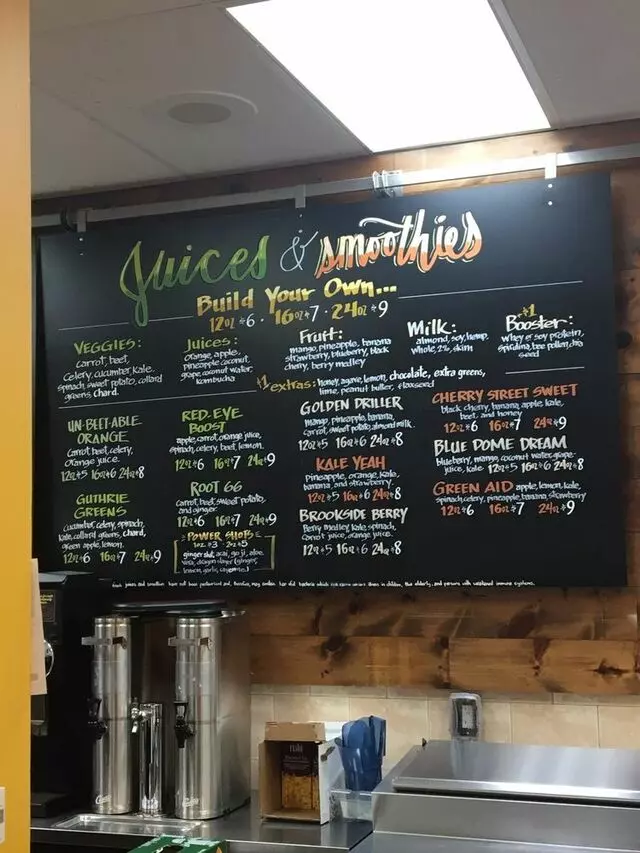 Juices & smoothies
Build Your Own...
12oz $6 · 16oz $7 · 24oz $9
VEGGIES:
carrot, beet,
celery, cucumber, kale
spinach, sweet potato, collard
greens, chard.
Juices:
orange, apple,
pineapple coconut,
grape, coconut water,
kombucha
Fruit:
mango, pineapple, banana
strawberry, blueberry, black
cherry, berry medley
Milk:
almond, soy, hemp,
whole, 2%, skim
$1
Booster:
whey or soy protein,
spirulina, bee pollen, chia
seed
$1 extras: honey, agave, lemon, chocolate, extra greens,
lime, peanut butter, flaxseed
UN-BEET-ABLE
ORANGE
Carrot, beet, celery,
orange juice.
12oz $5 16oz $6 24oz $8
GUTHRIE
GREENS
cucumber, celery, spinach,
kale, collard greens, chard,
green apple, lemon.
12oz $6 16oz $7 24oz $9
RED EYE
BOOST
apple, carrot, orange juice,
spinach, celery, beet, lemon.
12oz $6 16oz $7 24oz $9
ROOT 66
carrot, beet, sweet potato,
and ginger.
12oz $6 16oz $7 24oz $9
POWER SHOTS
1oz $3 · 2oz $5
ginger shot, acai, goji, aloe
vera, dragon slayer (ginger,
lemon, garlic, cayenne)
GOLDEN DRILLER
mango, pineapple, banana,
carrot, sweet potato, almond milk.
12oz $5 16oz $6 24oz $8
KALE YEAH
pineapple, orange, kale,
banana, and strawberry.
12oz $5 16oz $6 24oz $8
BROOKSIDE BERRY
Berry medley, kale, spinach,
carrot juice, orange juice.
12oz $5 16oz $6 24oz $8
CHERRY STREET SWEET
black cherry, banana, apple, kale,
beet, and honey
12oz $6 16oz $7 24oz $9
BLUE DOME DREAM
blueberry, mango, coconut water, grape
juice, kale 12oz $5 16oz $6 24oz $8
GREEN AID apple, lemon, kale,
spinach, celery, pineapple, banana, strawberry
12oz $6 16oz $7 24oz $9